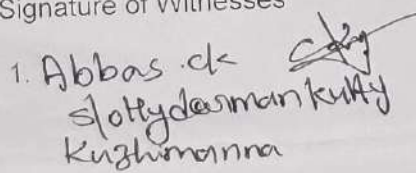 Signature of Witnesses
1. Abbas .ck
s/o Hydarmankutty
Kuzhimanna